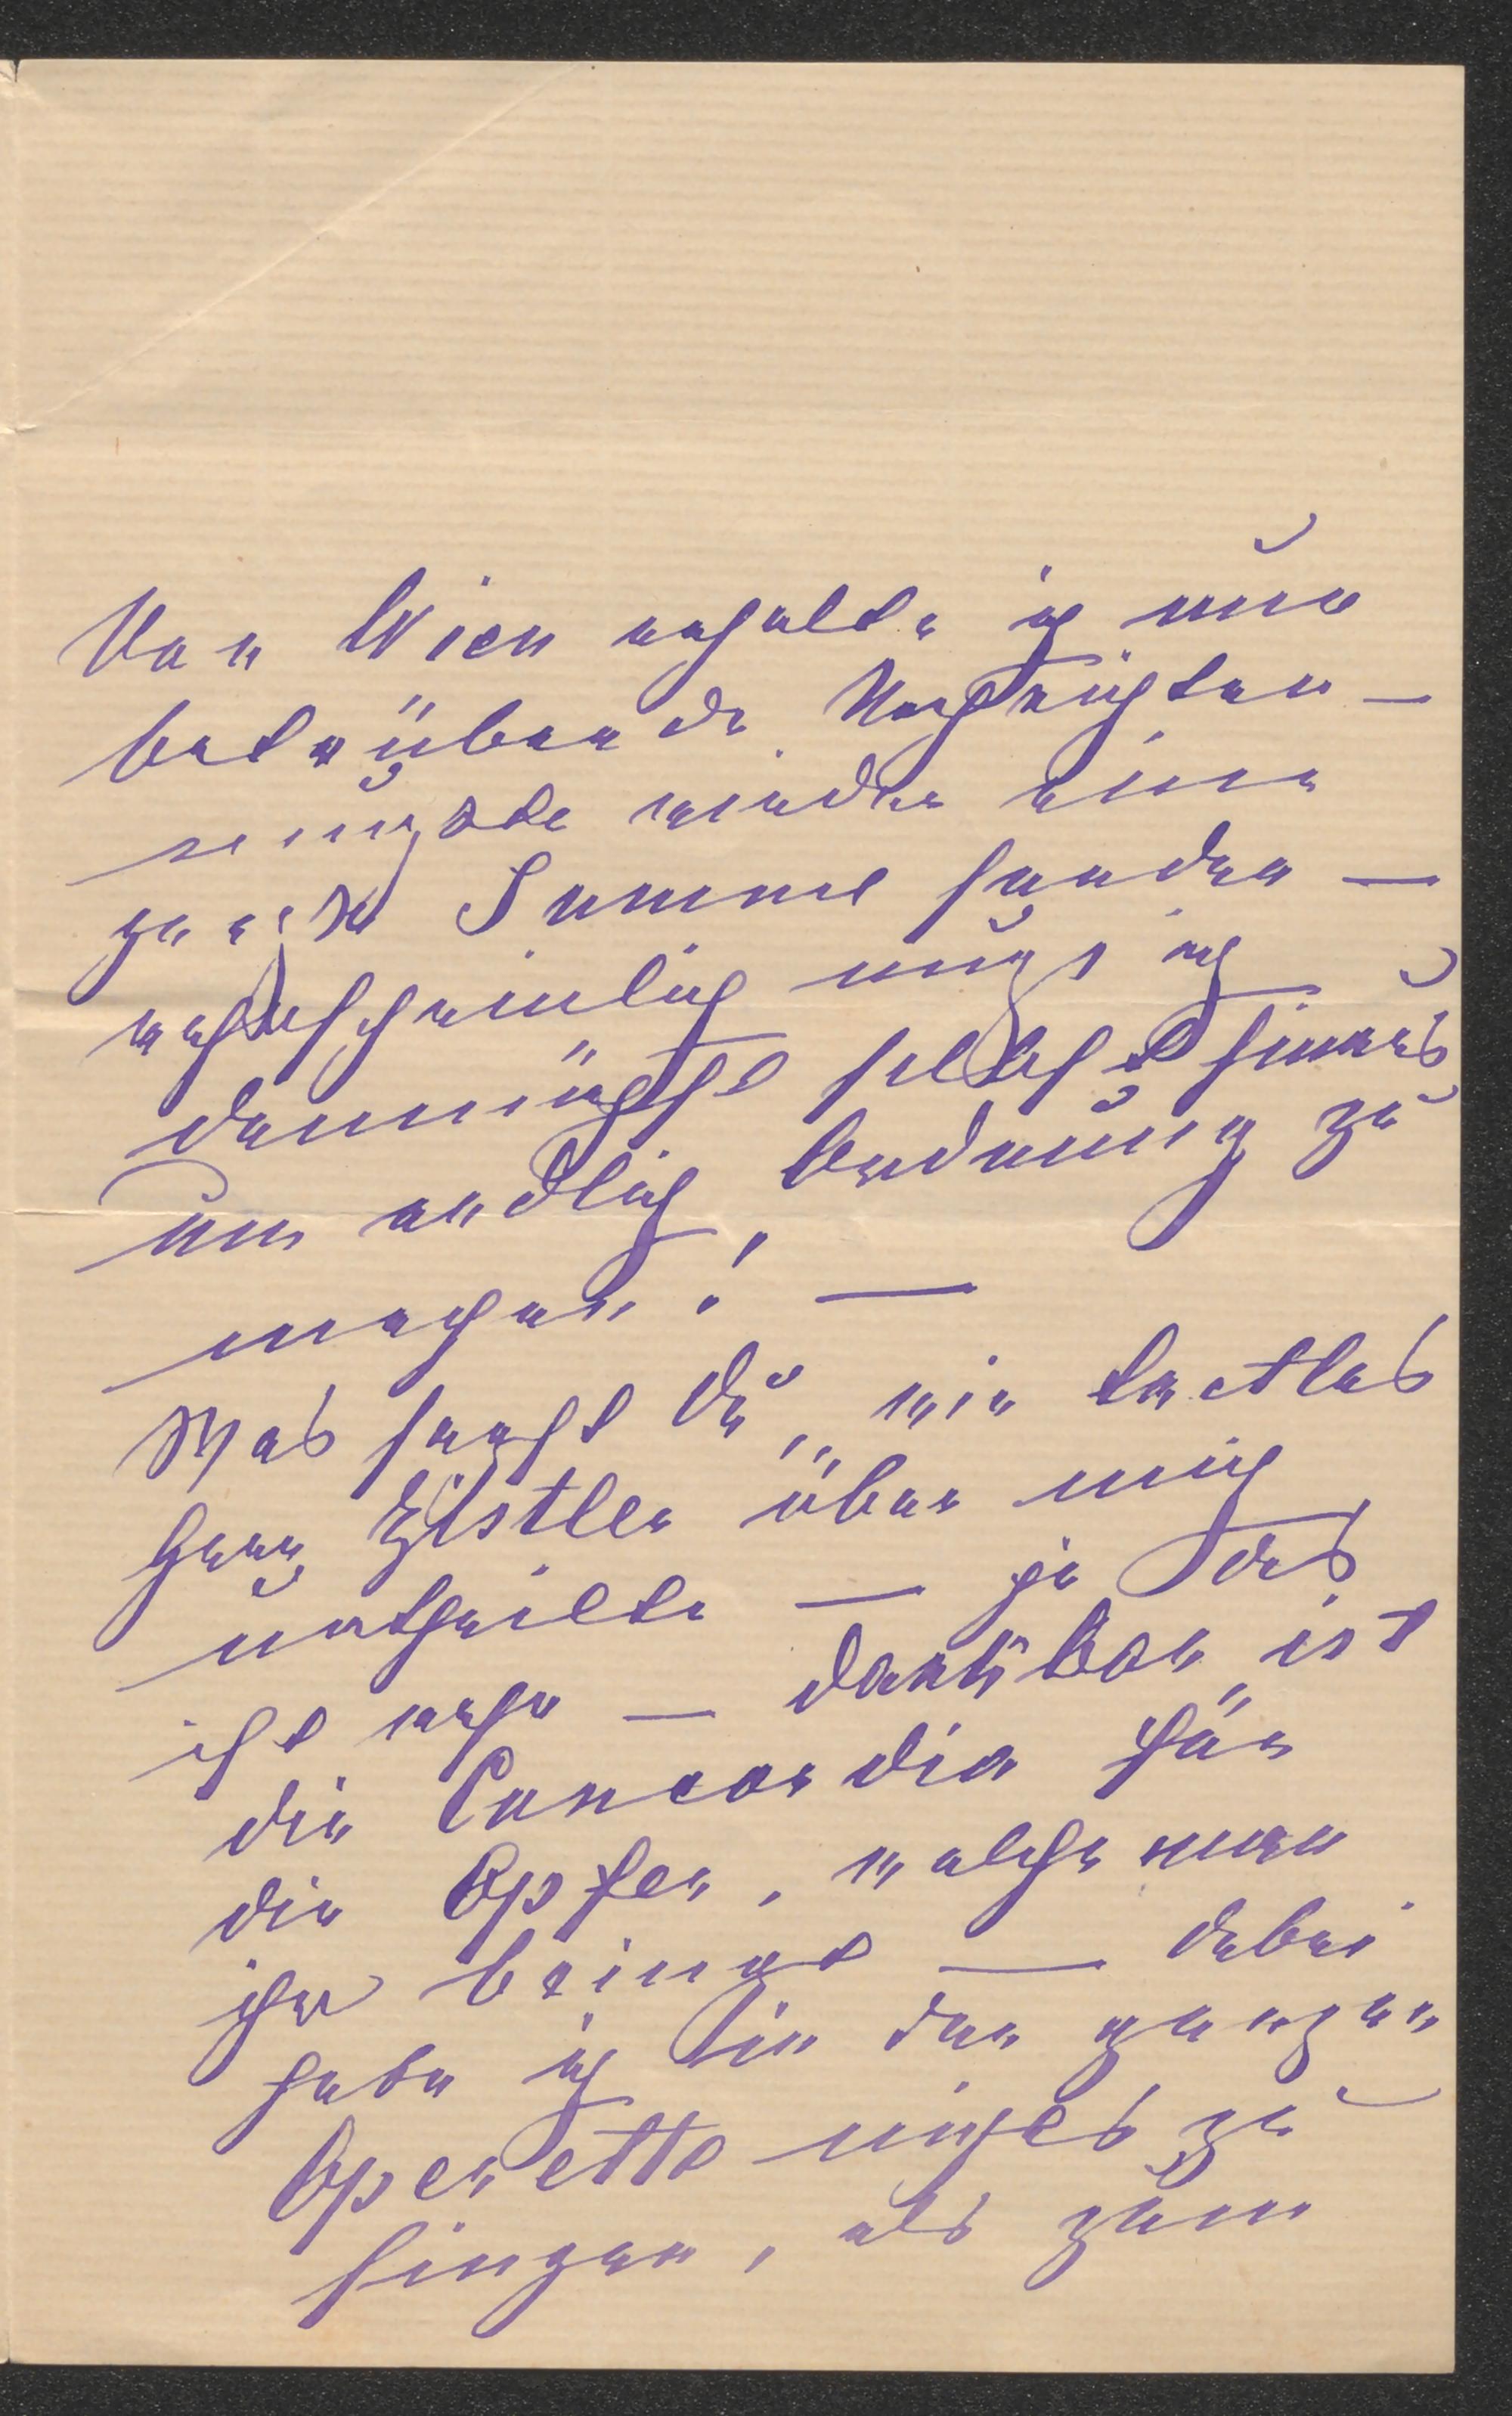 Von Wien erhalte ich nur
betrübende Nachrichten —
mußte wieder eine
große Summe senden —
wahrscheinlich muß ich
demnächst selbst hinaus
um endlich Ordnung zu
machen! —
Was sagst Du, wie tactlos
Herr Zistler über mich
urtheilte — ja das
ist wahr — dankbar ist
die Concordia für
die Opfer, welche man
ihr bringt — dabei
habe ich in der ganzen
Operette nichts zu
singen, als zum